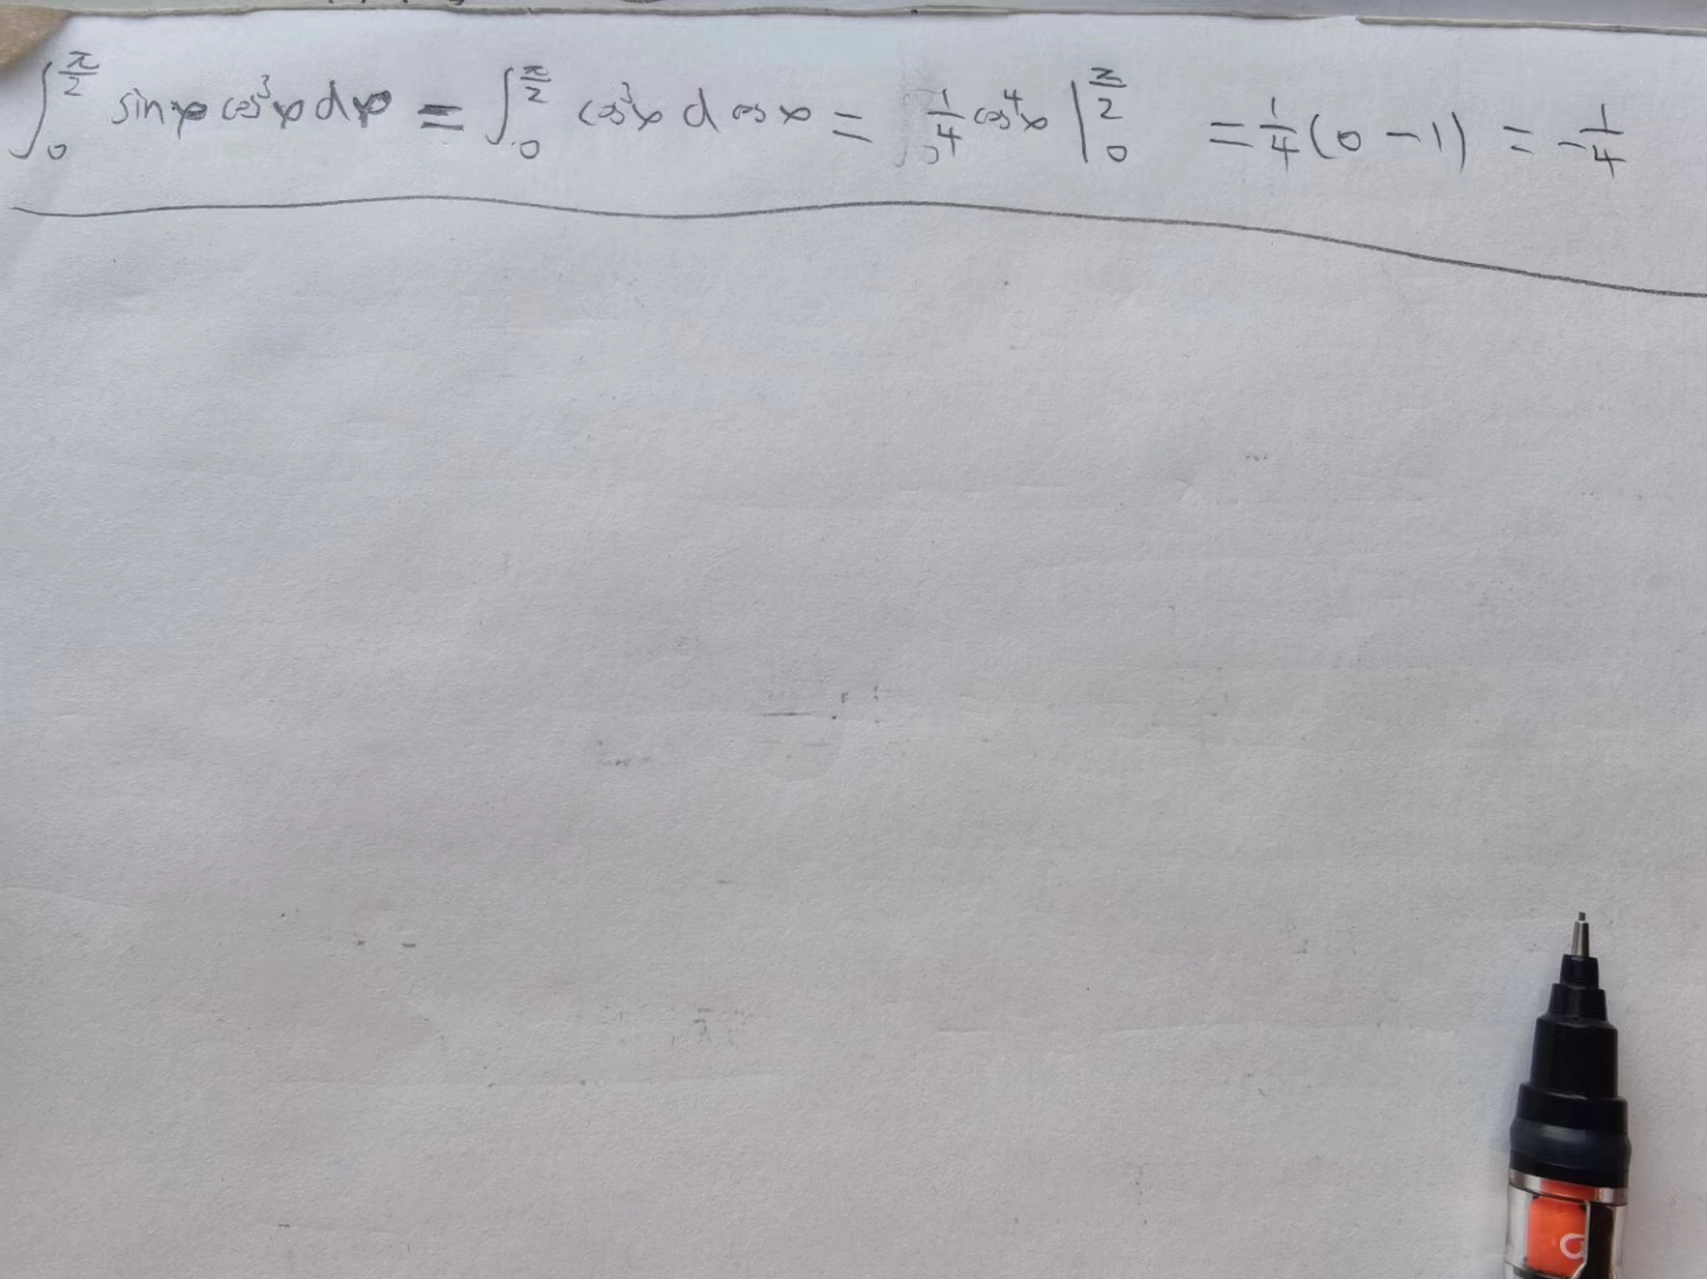 ∫₀^{π/2} sinφ cos³φ dφ = ∫₀^{π/2} cos³φ d cosφ = 1/4 cos⁴φ |₀^{π/2} = 1/4 (0 − 1) = −1/4